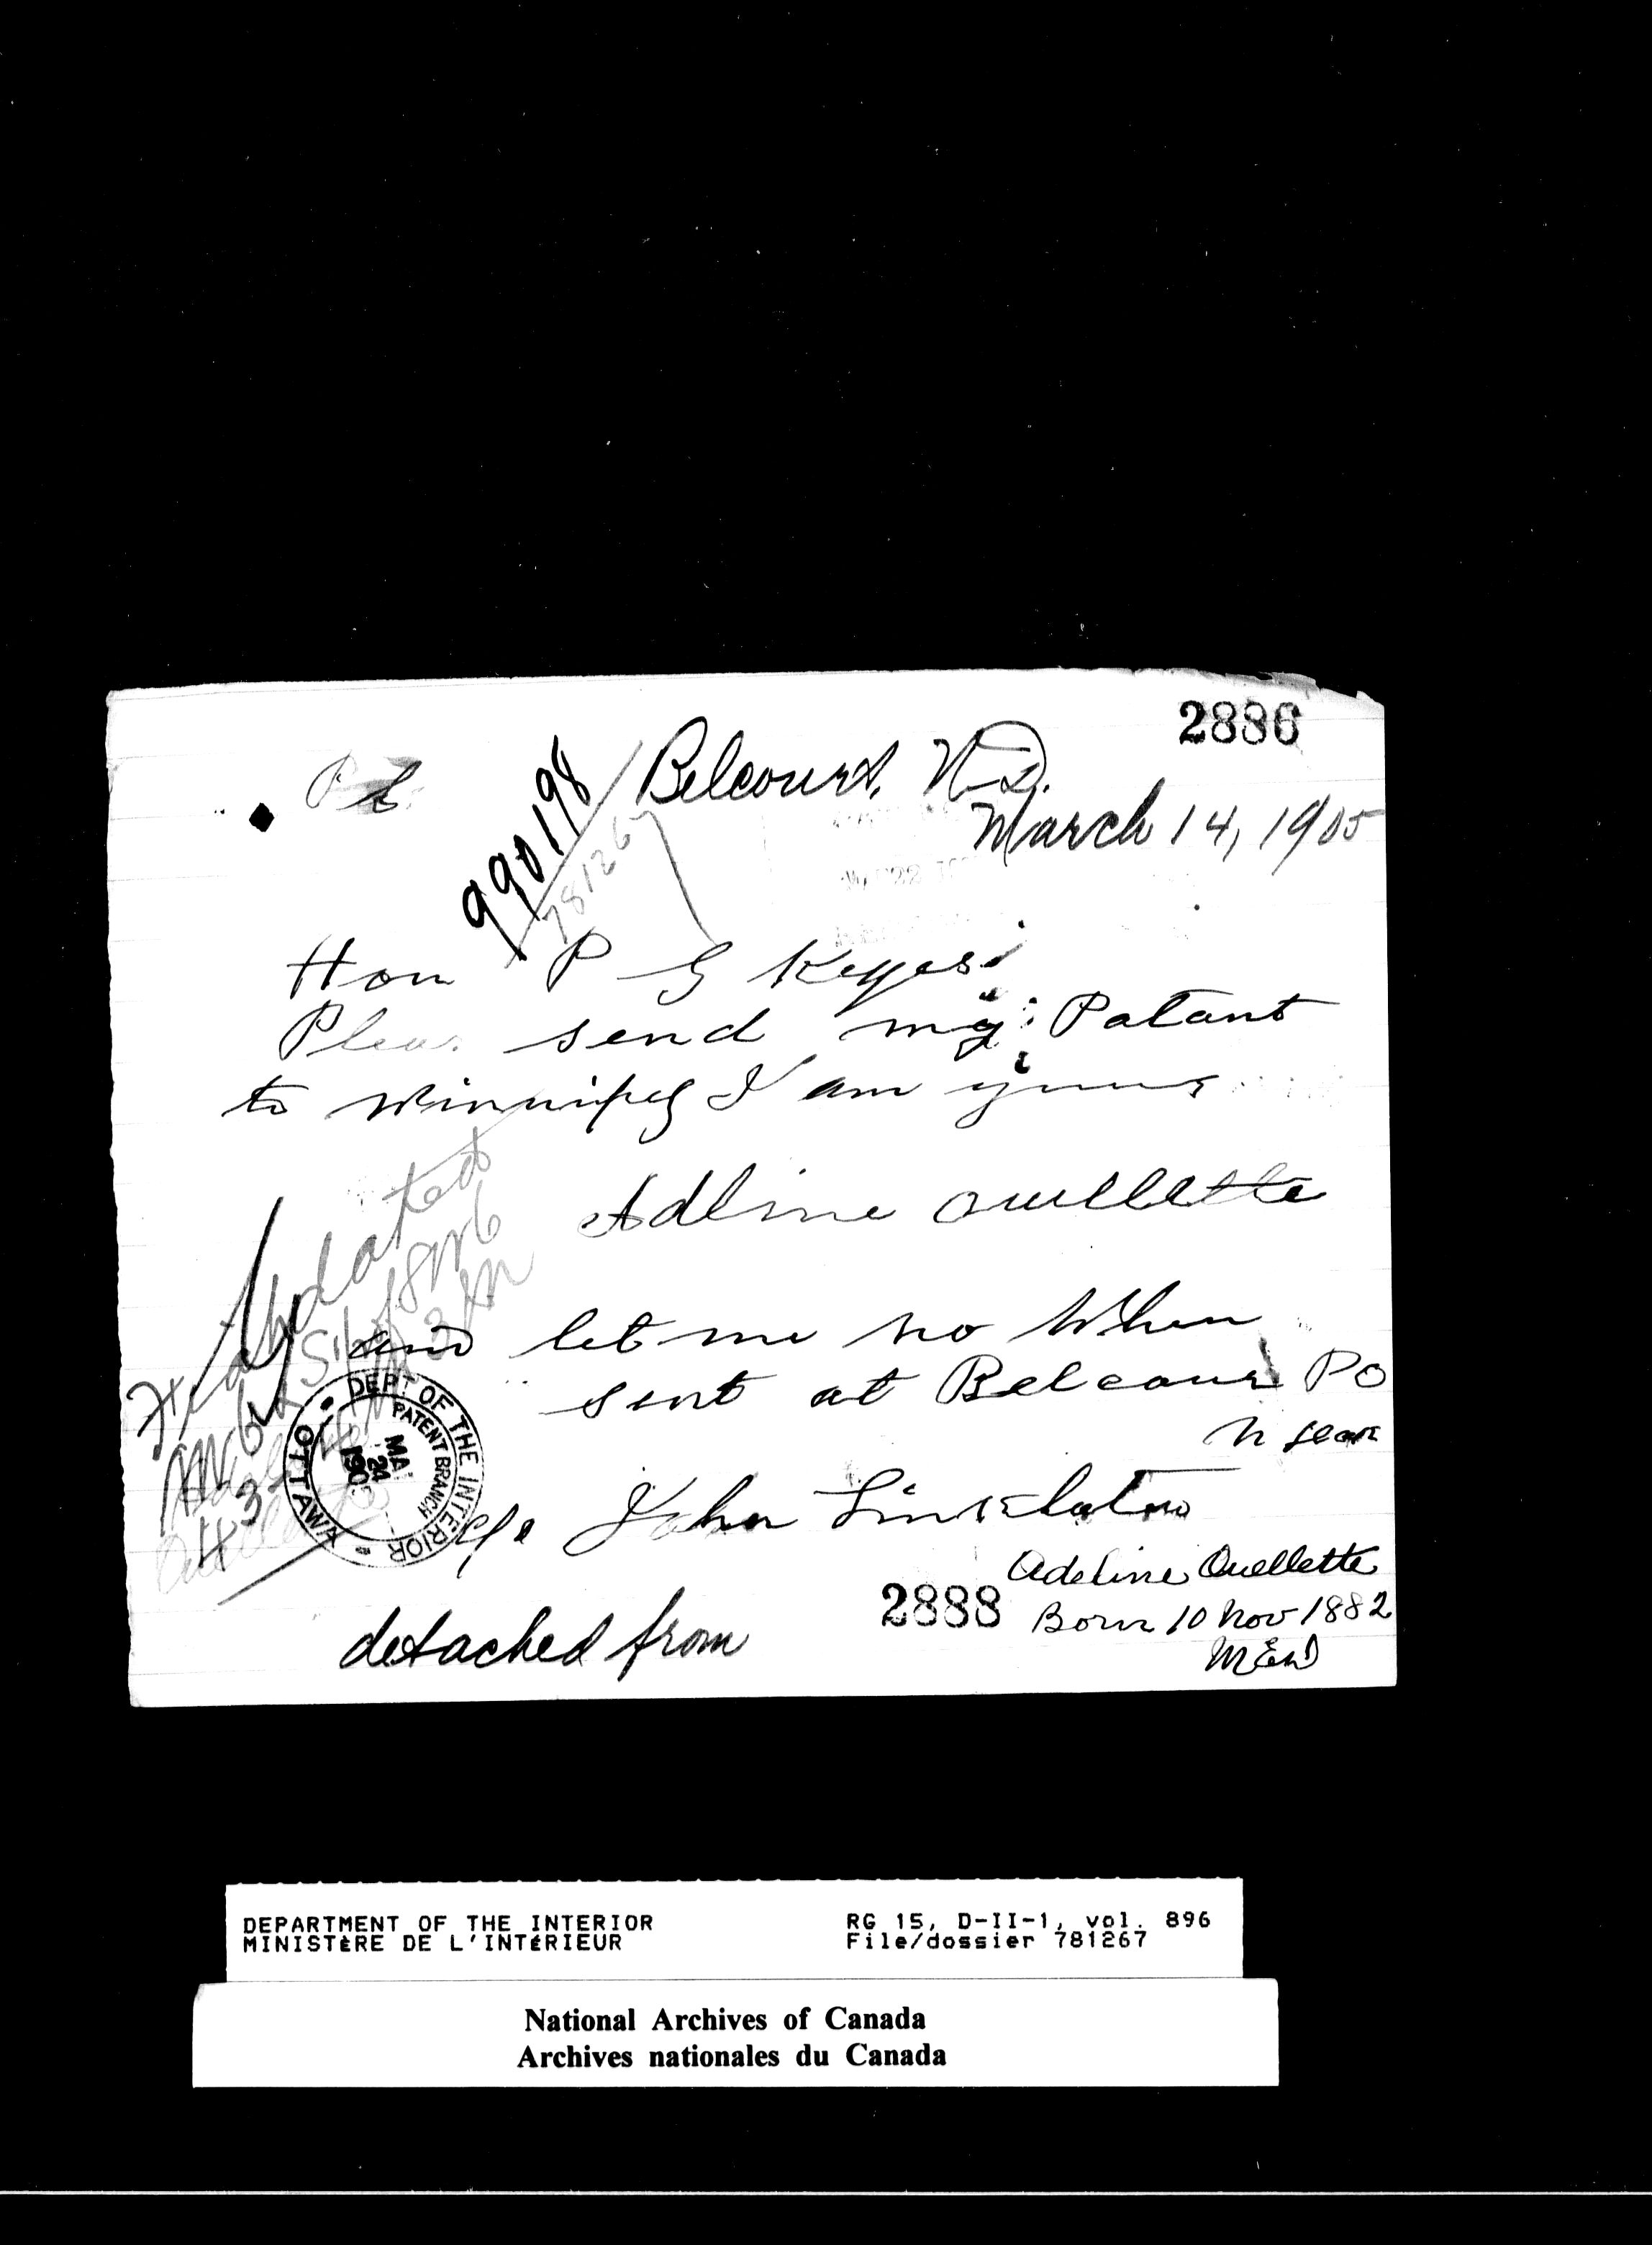 2886
Belcourt, N.D.
March 14, 1905
990198
781267
Hon P G Keyes
Pleas send my Patant
to Winnipeg I am yours
Adline Ouellette
and let me no When
sent at Belcour PO
N
DEPT OF THE INTERIOR
PATENT BRANCH
MA
24
190
OTTAWA
John
Adeline Ouellette
2888
Born 10 Nov 1882
detached from
DEPARTMENT OF THE INTERIOR
MINISTÈRE DE L'INTÉRIEUR
RG 15, D-II-1, vol. 896
File/dossier 781267
National Archives of Canada
Archives nationales du Canada